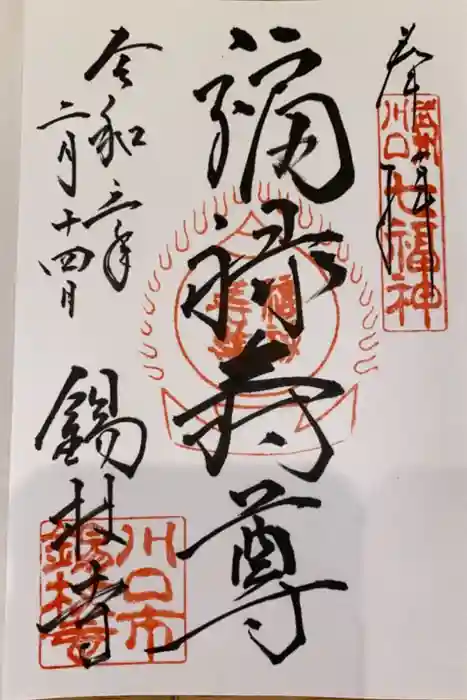 奉拝
武州川口七福神
福禄寿尊
福禄寿尊
令和三年
二月十四日
錫杖寺
川口市
錫杖寺